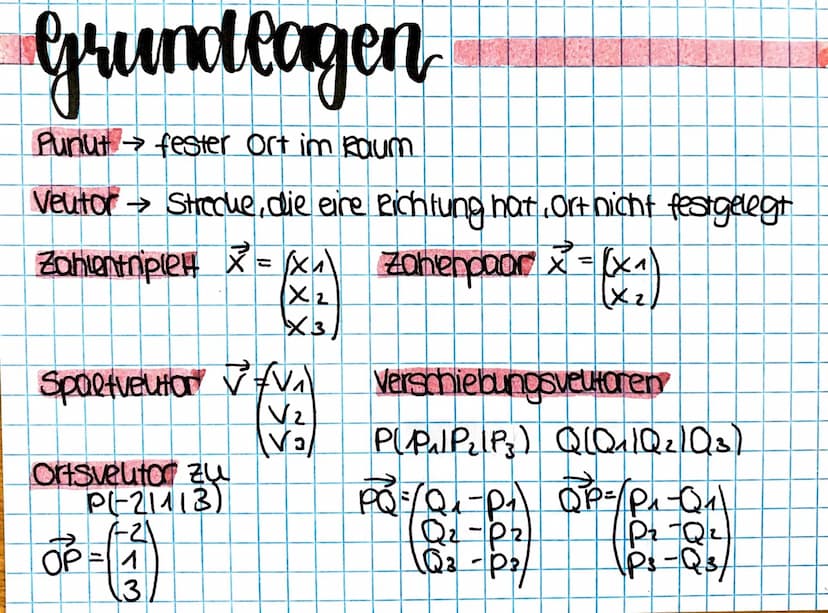 Grundlagen
Punkt → fester Ort im Raum
Vektor → Strecke, die eine Richtung hat, Ort nicht festgelegt
Zahlentriplett x⃗ = (x1 x2 x3)
Zahenpaar x⃗ = (x1 x2)
Spaltvektor v⃗ = (v1 v2 v3)
Verschiebungsvektoren
P(P1|P2|P3) Q(Q1|Q2|Q3)
Ortsvektor zu
P(-2|1|3)
OP⃗ = (-2 1 3)
PQ⃗ = (Q1-P1 Q2-P2 Q3-P3)
QP⃗ = (P1-Q1 P2-Q2 P3-Q3)